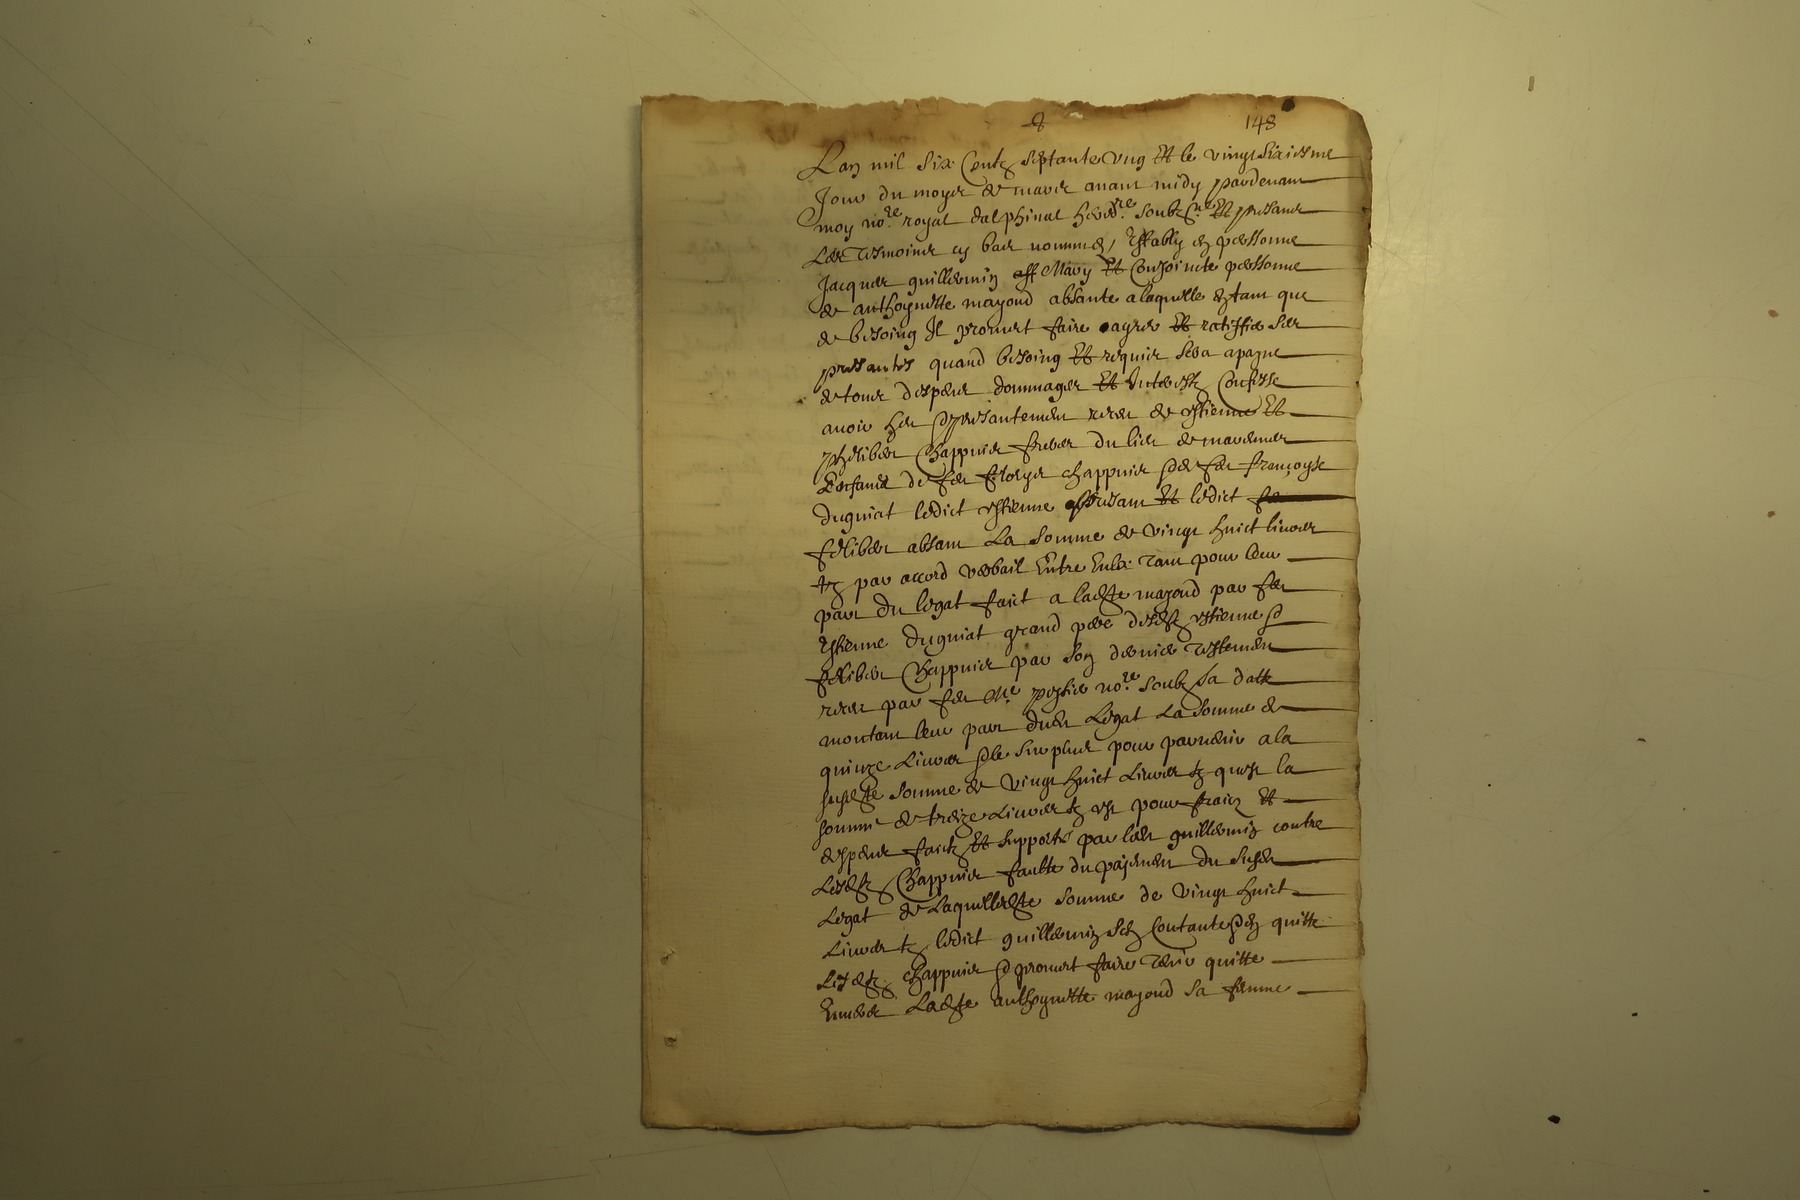 148
Lan mil six Centz septante Ung Et le vingt sixiesme
Jour du moys de mars avant midy pardevant
moy no.re royal dalphinal hered.re soubz.né Et presants
Les tesmoins cy bas nommes, Estably en personne
Jacques guillermin Mary Et Conjointe personne
de anthoynette mayoud absante a laquelle entant que
de besoing Il promet faire agreer Et ratiffier ses
presantes quand besoing Et requis sera a payne
de tous despens dommages Et Interestz Confesse
avoir heu presantement receu de estienne Et
phelibert Chappuis freres du lieu de
Enfants de feu chappuis de feu françoyse
duguiat ledict estienne presant Et ledict
felibert absant La somme de vingt huict livres
tz par accord verbail Entre Eulx tant pour leur
part du legat faict a ladte mayoud par feu
Estienne duguiat grand pere desdtz estienne
felibert Chappuis par son dernier testement
receu par feu Me no.re soubz sa datte
montant leur part dudt Legat La somme de
quinze Livres le surplus pour parvenir a la
susdte somme de vingt huict Livres tz quest la
somme de treize Livres tz est pour fraicz Et
despens faictz Et supportes par ledt guillermin contre
Lesdtz Chappuis faulte du payement du susdt
Legat de Laquelle dte somme de vingt huict
Livres tz ledict guillermin sen Contante en quitte
Lesdtz chappuis promet faire tenir quitte
Envers Ladte anthoynette mayoud sa femme